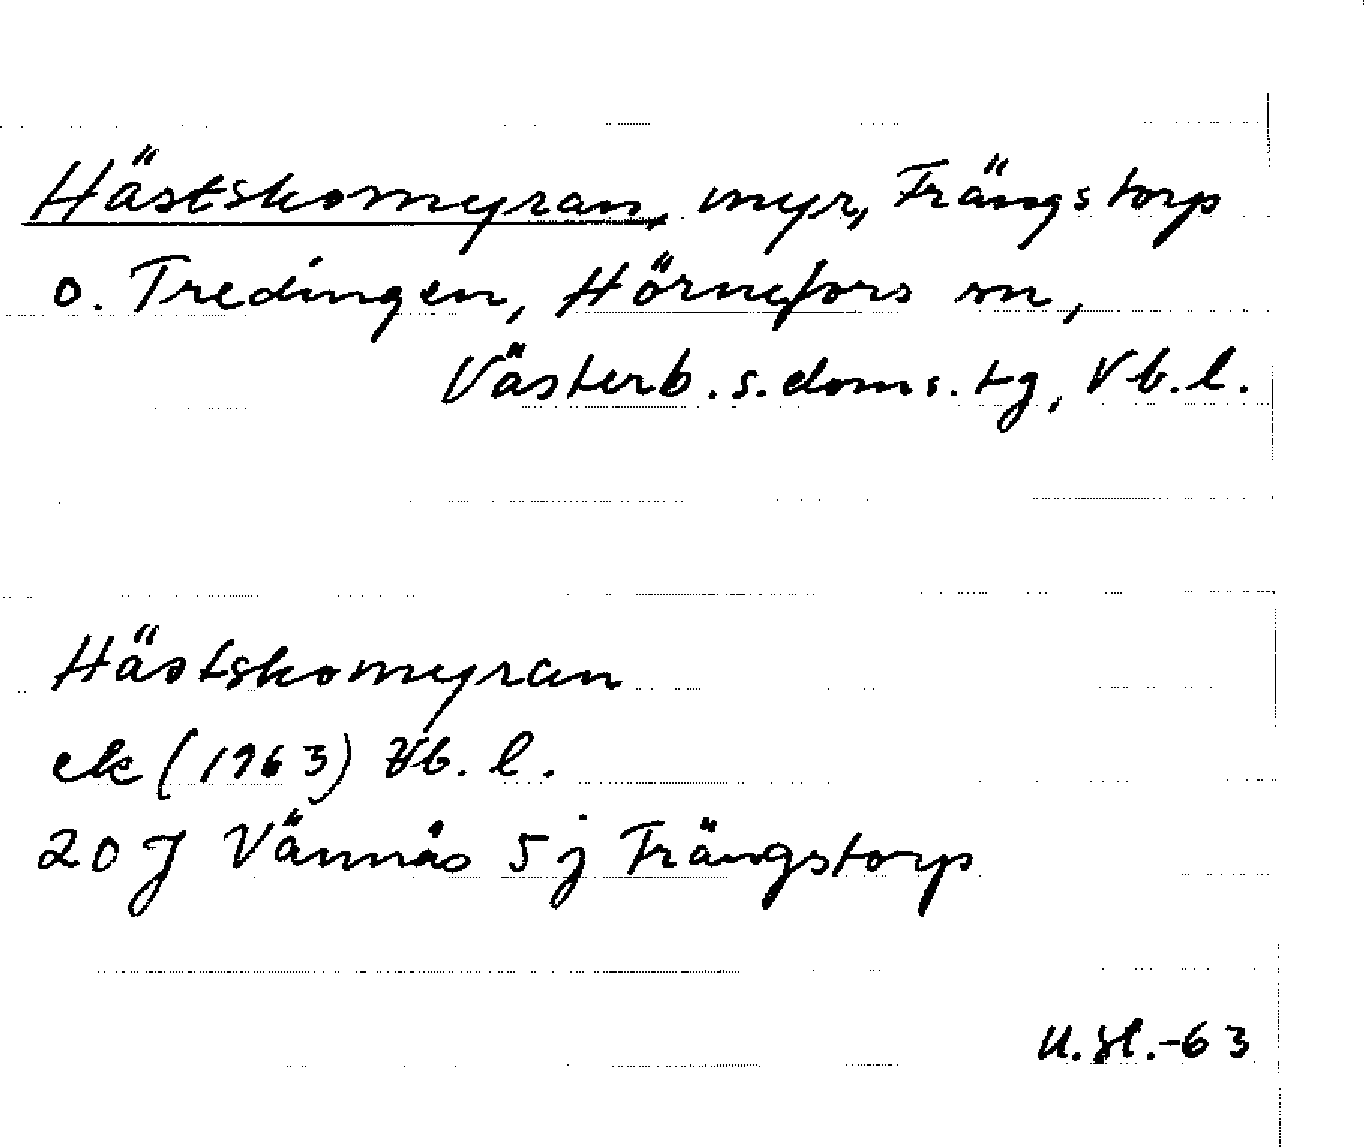 Hästskomyran, myr, Trängstorp
o. Tredingen, Hörnefors sn,
Västerb. s. doms. tg, Vb. l.
Hästskomyran
ek (1963) Vb. l.
20 J Vännäs 5 j Trängstorp
U. Sl. -63